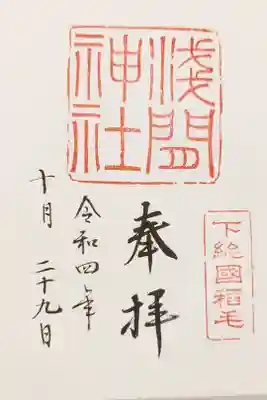 下総國稲毛
奉拝
浅間
神社
令和四年
十月二十九日